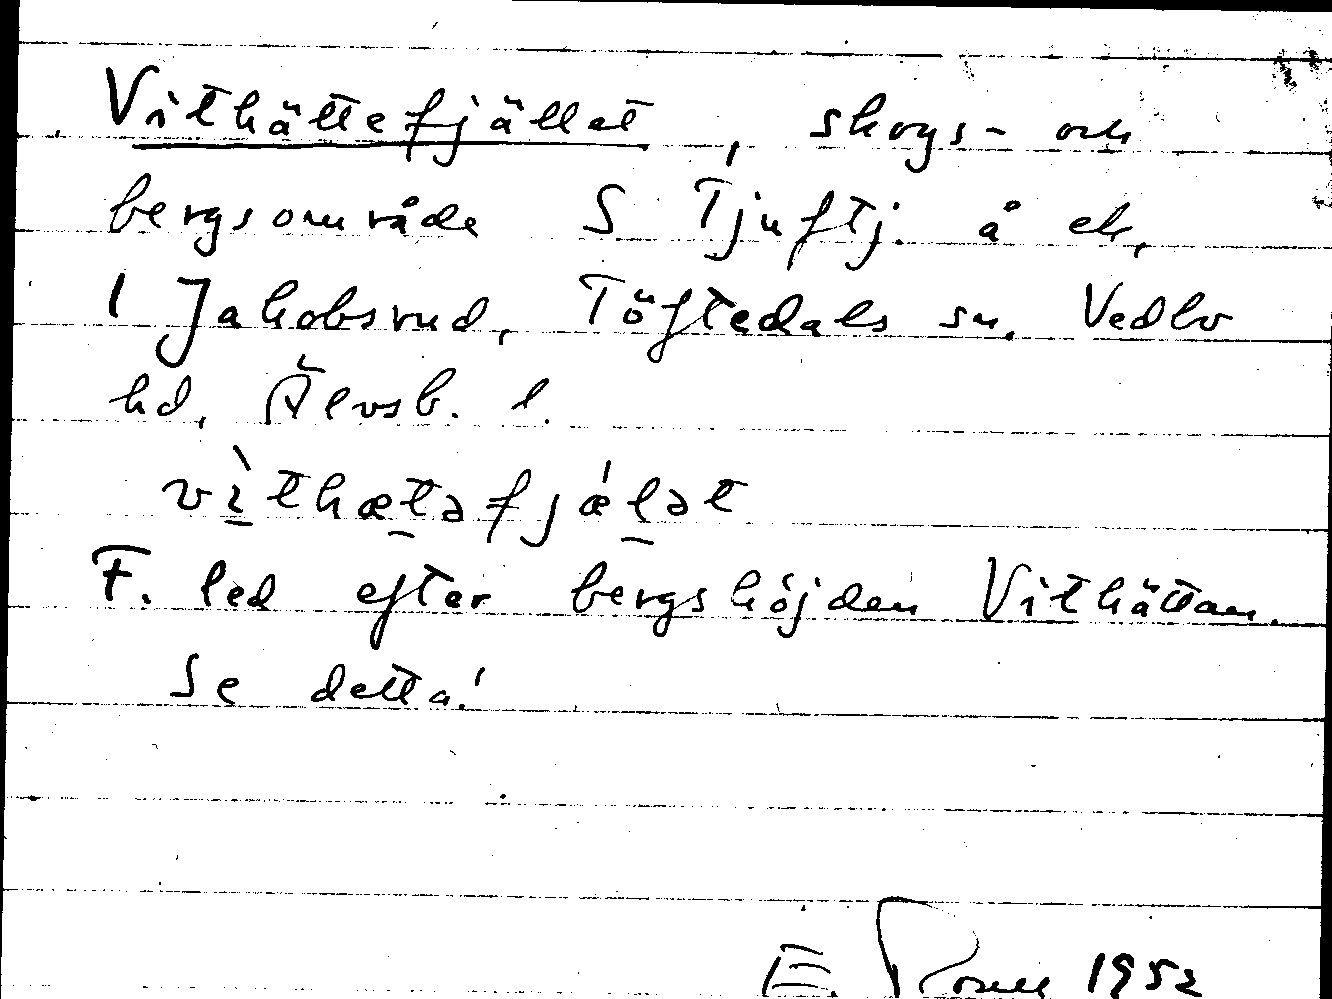 Vithättefjället, skogs- och
bergsområde S Tjuftj. å ek,
1 Jakobsrud, Töftedals sn. Vedbo
hd, Älvsb. l.
vìthætəfjǽlət
F. led efter bergshöjden Vithättan.
Se detta!
E. 1952